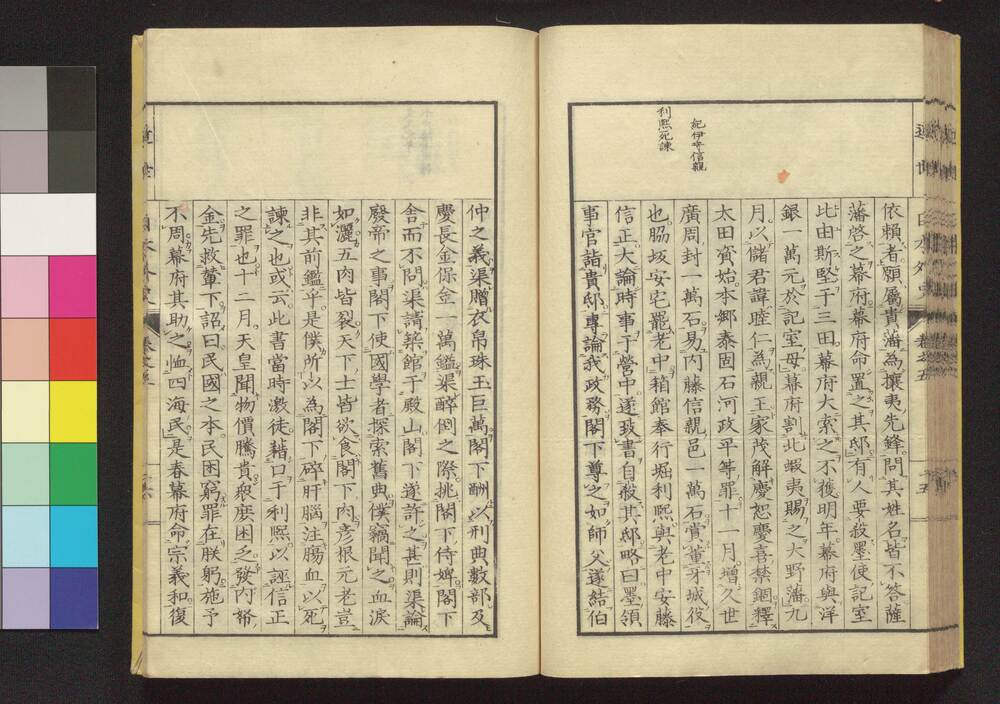 紀伊守信親
利熙死諫
依賴者願屬貴藩爲攘夷先鋒問其姓名皆不答薩
藩啓之幕府幕府命置之其邸有人要殺墨使記室
比由斯堅于三田幕府大索之不獲明年幕府與洋
銀一萬元於記室母幕府割北蝦夷賜之大野藩九
月以儲君諱睦仁爲親王家茂解慶恕慶喜禁錮釋
太田資始本郷泰固石河政平等罪十一月增久世
廣周封一萬石易内藤信親邑一萬石賞董牙城役
也脇坂安宅罷老中箱館奉行堀利熙與老中安藤
信正大論時事于營中遂致書自殺其邸略曰墨領
事官詣貴邸專論我政務閣下尊之如師父遂結伯
仲之義渠贈衣帛珠玉巨萬閣下酬以刑典數部及
慶長金保金一萬鎰渠醉倒之際挑閣下侍婢閣下
舍而不問渠請築館于殿山閣下遂許之甚則渠論
廢帝之事閣下使國學者探索舊典僕竊聞之血淚
如灑五内皆裂天下士皆欲食閣下肉彦根元老豈
非其前鑑乎是僕所以爲閣下碎肝腦注腸血以死
諫之也或云此書當時激徒藉口于利熙以誣信正
之罪也十二月天皇聞物價騰貴衆庶困之發内帑
金先救輦下詔曰民國之本民困窮罪在朕躬施予
不周幕府其助之恤四海民是春幕府命宗義和復